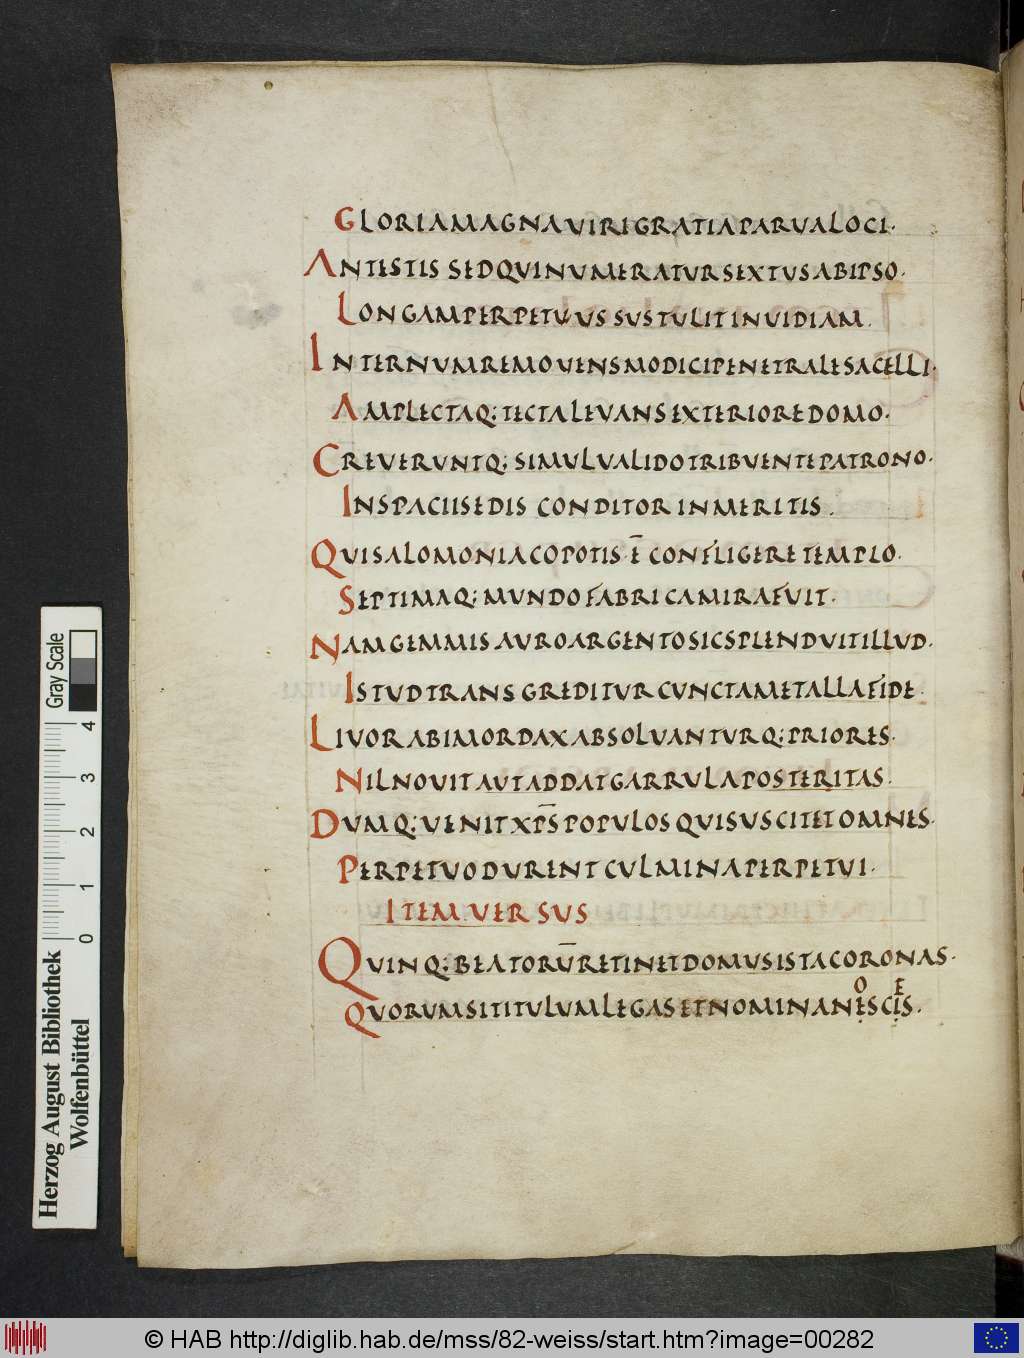 GLORIAMAGNAVIRIGRATIAPARUALOCI.
ANTESTIS SEDQUINUMERATURSEXTUSABIPSO.
LONGAMPERPETUUS SUSTULITINUIDIAM.
INTERNUMREMOVENSMODICIPENETRALESACELLI.
AMPLECTAQ; TECTALEVANSEXTERIOREDOMO.
CREVERUNTQ; SIMULVALIDOTRIBUENTEPATRONO.
INSPACIISEDIS CONDITOR INMERITIS.
QUISALOMONIACOPOTIS·Ē CONFLIGERETEMPLO.
SEPTIMAQ; MUNDOFABRICAMIRAFUIT.
NAMGEMMIS AUROARGENTOSICSPLENDUITILLUD.
ISTUDTRANSGREDITURCUNCTAMETALLAFIDE.
LIVORABIMORDAXABSOLVANTURQ; PRIORES.
NILNOUITAUTADDATGARRULAPOSTERITAS.
DUMQ; UENITXP̄SPOPULOSQUISUSCITETOMNES.
PERPETUODURENTCULMINAPERPETUI.
ITEM.VERSUS
QUINQ; BEATORŪRETINETDOMUSISTACORONAS.
O E
QUORUMSITITULUMLEGASETNOMINANESCIS.
Gray Scale
0 1 2 3 4
Herzog August Bibliothek
Wolfenbüttel
© HAB http://diglib.hab.de/mss/82-weiss/start.htm?image=00282